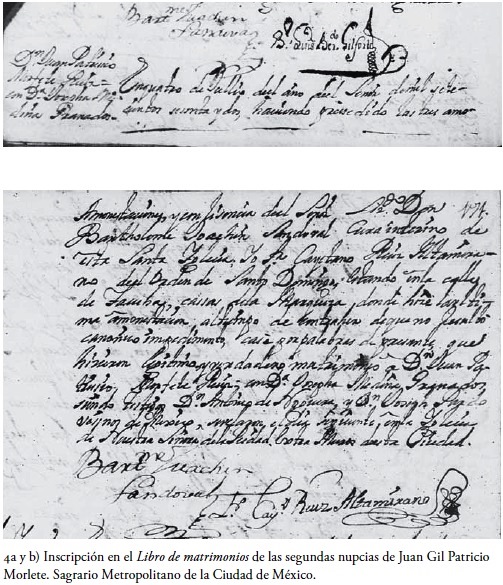 Bart.me Joachin
Sandoval
Br. Luis Ber.do
Dn. Juan Patricio
Morlete Ruiz
con Da. Josepha Me-
dina Pranados.
En quatro de Julio del año del Señor de mil sete-
cientos sesenta y dos, haviendo precedido las tres amo-
Amonestaciones, y con licencia del Sor. Don
Bartholomé Joachin Sandoval Cura interino de
esta Santa Iglesia, Yo Fr. Cayetano Ruiz Altamira-
no del Orden de Santo Domingo, estando en la calle
de Tacuba, cassa de la donde hize la ulti-
ma amonestacion, al tiempo de de que no resultó
canonico impedimento, casé por palabras de presente, que
hizieron legitimo y verdadero matrimonio a Dn. Juan Pa-
tricio Morlete Ruiz, con Da. Josepha Medina Pranados,
siendo testigos Dn. Antonio de y Dn. Joseph
el dia siguiente, en la Iglesia
de Nuestra Señora de la Piedad, extra Muros de esta Ciudad.
Bart.me Joachin
Sandoval
Fr. Cayo. Ruiz Altamirano
4a y b) Inscripción en el Libro de matrimonios de las segundas nupcias de Juan Gil Patricio
Morlete. Sagrario Metropolitano de la Ciudad de México.